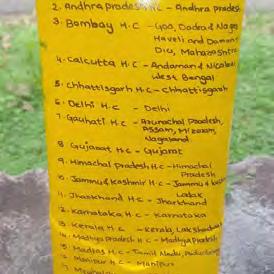 2. Andhra Pradesh H.C - Andhra Pradesh
3. Bombay H.C - Goa, Dadra & Nagar
Haveli and Daman
Diu, Maharashtra
4. Calcutta H.C - Andaman & Nicobar
West Bengal
5. Chhattisgarh H.C - Chhattisgarh
6. Delhi H.C - Delhi
7. Gauhati H.C - Arunachal Pradesh,
Assam, Mizoram,
Nagaland
8. Gujarat H.C - Gujarat
9. Himachal Pradesh H.C - Himachal
Pradesh
10. Jammu & Kashmir H.C - Jammu &
Ladak
11. Jharkhand H.C - Jharkhand
12. Karnataka H.C - Karnataka
13. Kerala H.C - Kerala, Lakshadweep
14. Madhya Pradesh H.C - Madhya Pradesh
15. Madras H.C - Tamil Nadu, Puducherry
16. Manipur H.C - Manipur
17.